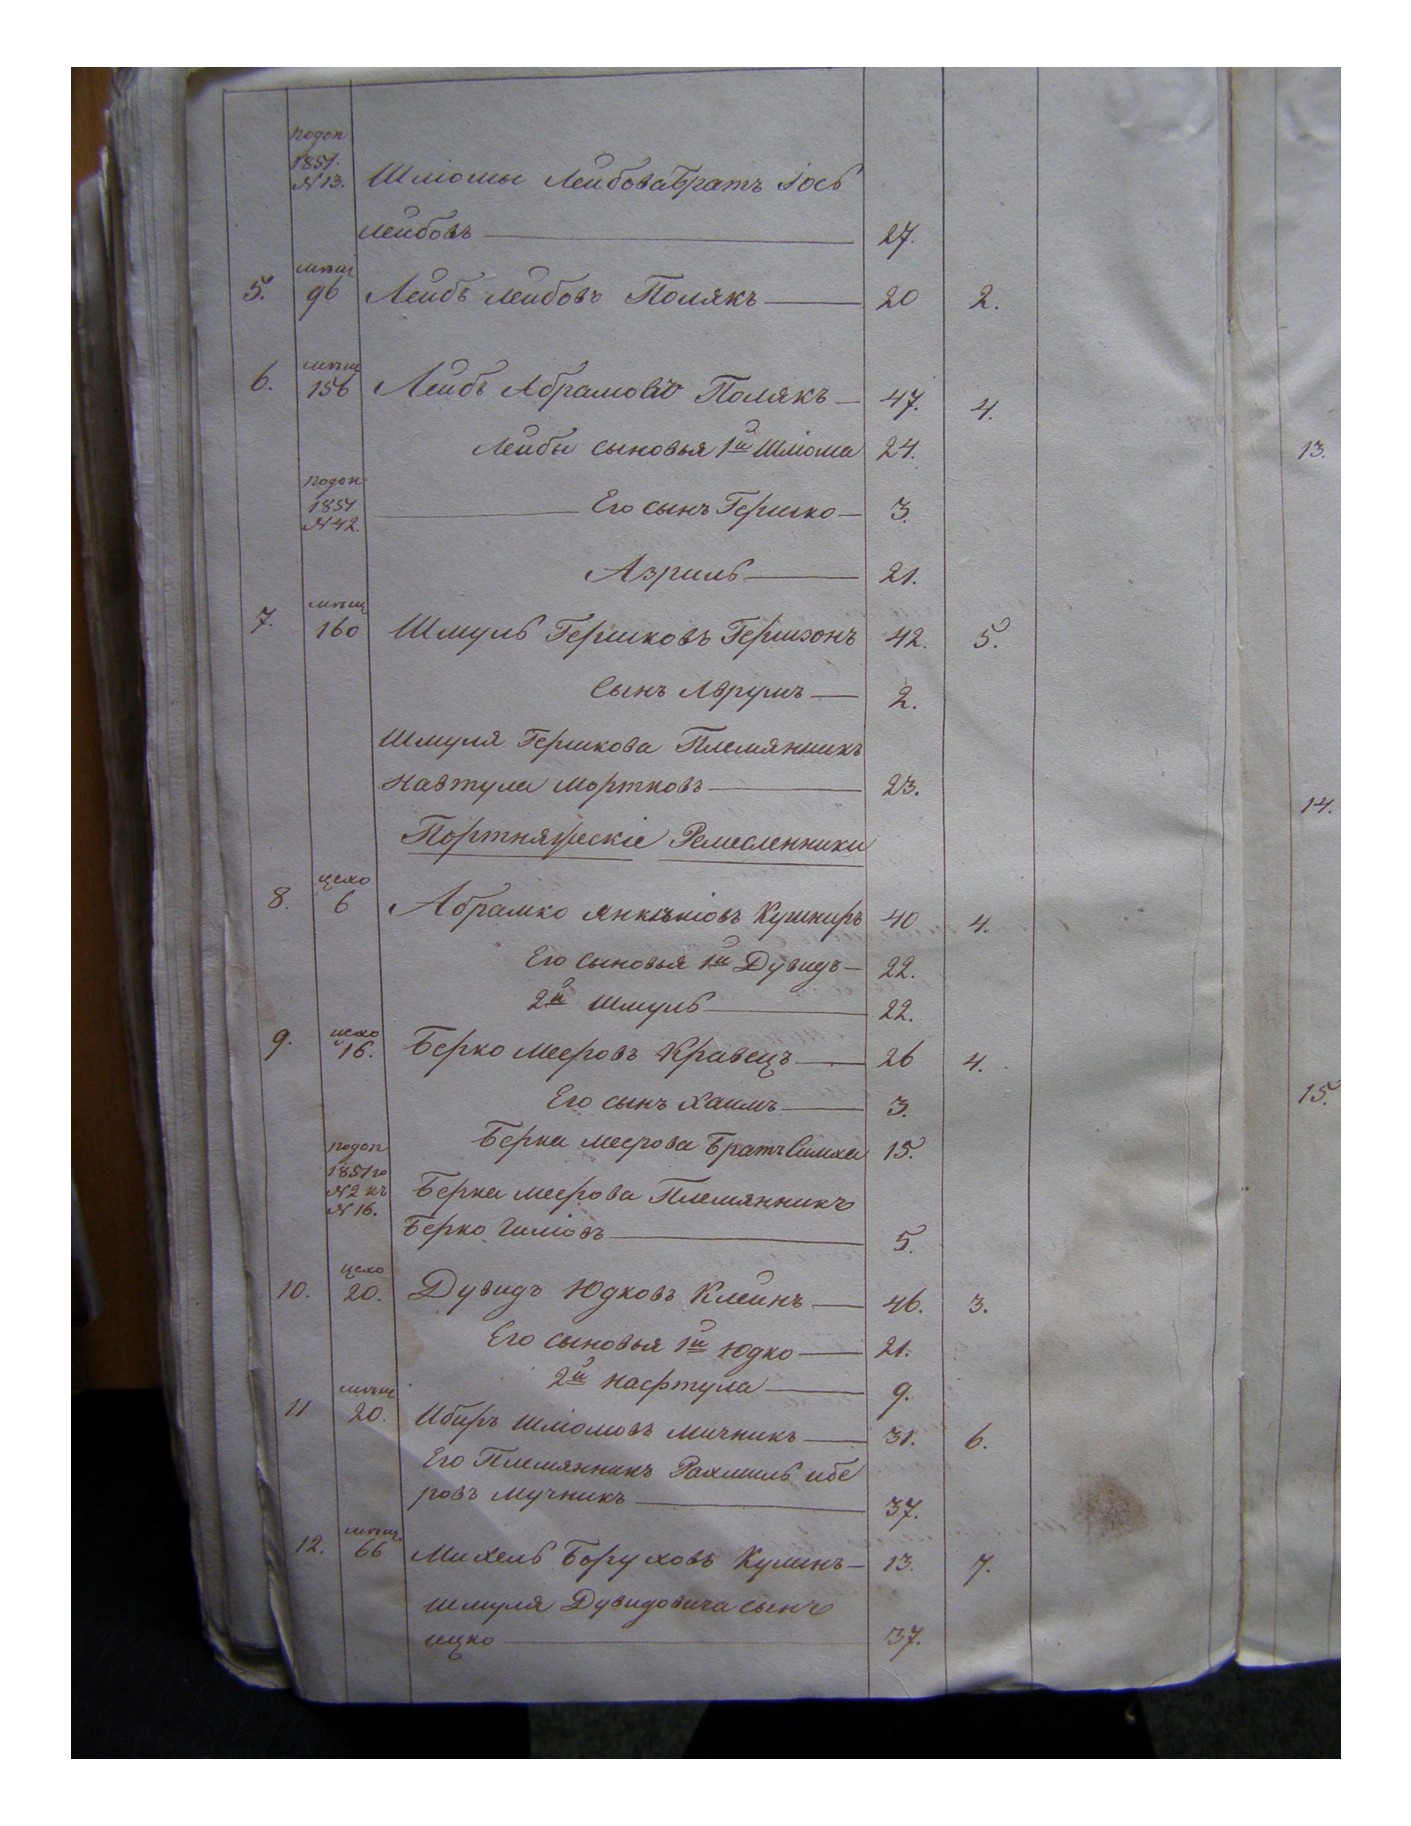 подоп
1851.
№ 13. Шліомы Лейбова Братъ Іось
Лейбовъ 27.
мѣщ
5. 96 Лейбъ Лейбовъ Полякъ 20 2.
мѣщ
6. 156 Лейбъ Абрамовъ Полякъ 47. 4.
Лейбы сыновья 1й Шліома 24.
подоп
1851
№ 42. Его сынъ Гершко 3.
Азриль 21.
мѣщ
7. 160 Шмуль Гершковъ Гершзонъ 42. 5.
Сынъ Аврумъ 2.
Шмуля Гершкова Племянникъ
Навтула Мортковъ 23.
Портняческіе Ремесленники
цехо
8. 6 Абрамко Янкеліовъ Кушниръ 40 4.
Его сыновья 1й Дувидъ 22.
2й Шмуль 22.
цехо
9. 16. Берко Мееровъ Кравецъ 26 4.
Его сынъ Хаимъ 3.
Берка Меерова Братъ Симха 15.
подоп
1851го
№ 2 къ
№ 16. Берка Меерова Племянникъ
Берко 5.
цехо
10. 20. Дувидъ Юдковъ Клейнъ 46. 3.
Его сыновья 1й Юдко 21.
2й Нафтула 9.
мѣщ
11 20. Ибиръ Шліомовъ Мичникъ 31. 6.
Его Племянникъ Рахмиль Ибе
ровъ Мучникъ 37.
мѣщ
12. 66 Михель Боруховъ 13. 7.
Шмуля Дувидовича сынъ
Ицко 37.
13.
14.
15.